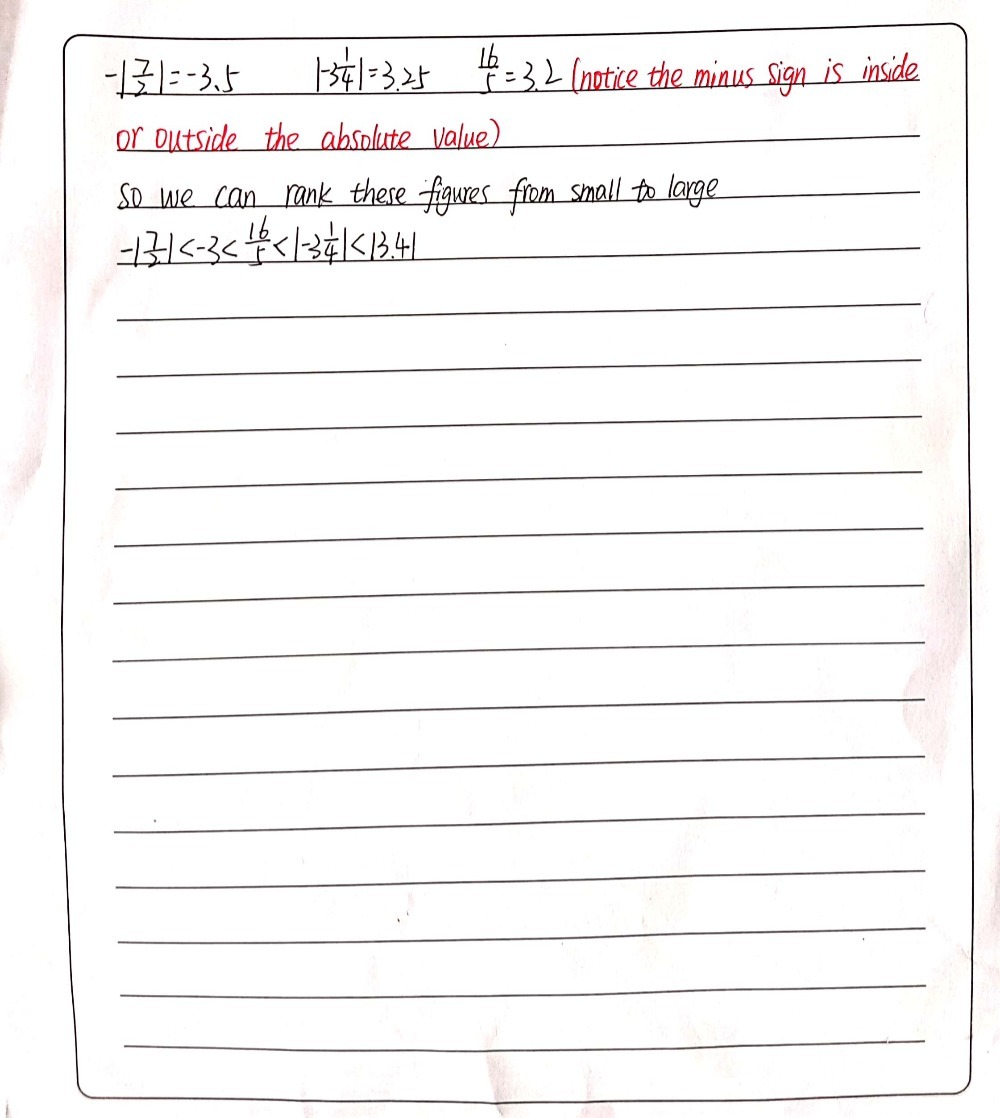 -|7/2|=-3.5 |-3 1/4|=3.25 16/5=3.2 (notice the minus sign is inside
or outside the absolute value)
So we can rank these figures from small to large
-|7/2|<-3<16/5<|-3 1/4|<|3.4|